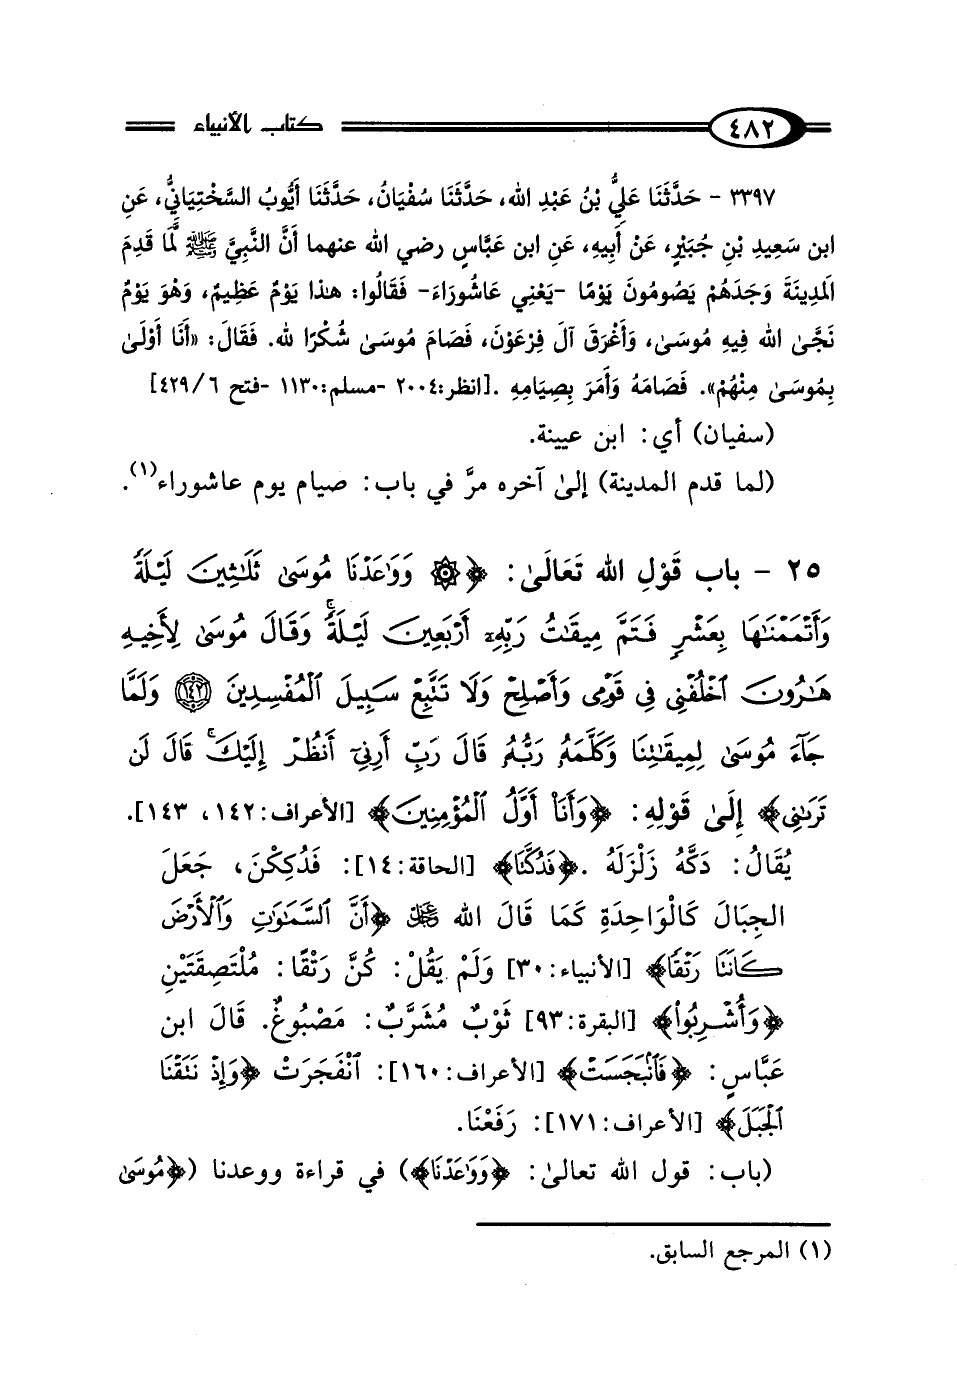 ٤٨٢ كتاب الأنبياء
٣٣٩٧ - حَدَّثَنَا عَلِيُّ بْنُ عَبْدِ الله، حَدَّثَنَا سُفْيَانُ، حَدَّثَنَا أَيُّوبُ السَّخْتِيَانِيُّ، عَنِ
ابن سَعِيدِ بْنِ جُبَيْرٍ، عَنْ أَبِيهِ، عَنِ ابن عَبَّاسٍ رضي الله عنهما أَنَّ النَّبِيَّ ﷺ لَمَّا قَدِمَ
المَدِينَةَ وَجَدَهُمْ يَصُومُونَ يَوْمًا -يَعْنِي عَاشُورَاءَ- فَقَالُوا: هذا يَوْمٌ عَظِيمٌ، وَهُوَ يَوْمٌ
نَجَّى الله فِيهِ مُوسَىٰ، وَأَغْرَقَ آلَ فِرْعَوْنَ، فَصَامَ مُوسَىٰ شُكْرًا لله. فَقَالَ: «أَنَا أَوْلَىٰ
بِمُوسَىٰ مِنْهُمْ». فَصَامَهُ وَأَمَرَ بِصِيَامِهِ .[انظر:٢٠٠٤ -مسلم:١١٣٠ -فتح ٤٢٩/٦]
(سفيان) أي: ابن عيينة.
(لما قدم المدينة) إلىٰ آخره مرَّ في باب: صيام يوم عاشوراء(١).
٢٥ - باب قَوْلِ الله تَعَالَىٰ: ﴿۞ وَوَٰعَدْنَا مُوسَىٰ ثَلَٰثِينَ لَيْلَةً
وَأَتْمَمْنَٰهَا بِعَشْرٍ فَتَمَّ مِيقَٰتُ رَبِّهِۦٓ أَرْبَعِينَ لَيْلَةً ۚ وَقَالَ مُوسَىٰ لِأَخِيهِ
هَٰرُونَ ٱخْلُفْنِى فِى قَوْمِى وَأَصْلِحْ وَلَا تَتَّبِعْ سَبِيلَ ٱلْمُفْسِدِينَ ١٤٢ وَلَمَّا
جَآءَ مُوسَىٰ لِمِيقَٰتِنَا وَكَلَّمَهُۥ رَبُّهُۥ قَالَ رَبِّ أَرِنِىٓ أَنظُرْ إِلَيْكَ ۚ قَالَ لَن
تَرَىٰنِى﴾ إِلَىٰ قَوْلِهِ: ﴿وَأَنَا۠ أَوَّلُ ٱلْمُؤْمِنِينَ﴾ [الأعراف:١٤٢، ١٤٣].
يُقَالُ: دَكَّهُ زَلْزَلَهُ .﴿فَدُكَّتَا﴾ [الحاقة:١٤]: فَدُكِكْنَ، جَعَلَ
الجِبَالَ كَالْوَاحِدَةِ كَمَا قَالَ الله ﷿ ﴿أَنَّ ٱلسَّمَٰوَٰتِ وَٱلْأَرْضَ
كَانَتَا رَتْقًا﴾ [الأنبياء:٣٠] وَلَمْ يَقُلْ: كُنَّ رَتْقًا: مُلْتَصِقَتَيْنِ
﴿وَأُشْرِبُوا۟﴾ [البقرة:٩٣] ثَوْبٌ مُشَرَّبٌ: مَصْبُوغٌ. قَالَ ابن
عَبَّاسٍ: ﴿فَٱنۢبَجَسَتْ﴾ [الأعراف:١٦٠]: ٱنْفَجَرَتْ ﴿وَإِذْ نَتَقْنَا
ٱلْجَبَلَ﴾ [الأعراف:١٧١]: رَفَعْنَا.
(باب: قول الله تعالىٰ: ﴿وَوَٰعَدْنَا﴾) في قراءة ووعدنا (﴿مُوسَىٰ
(١) المرجع السابق.